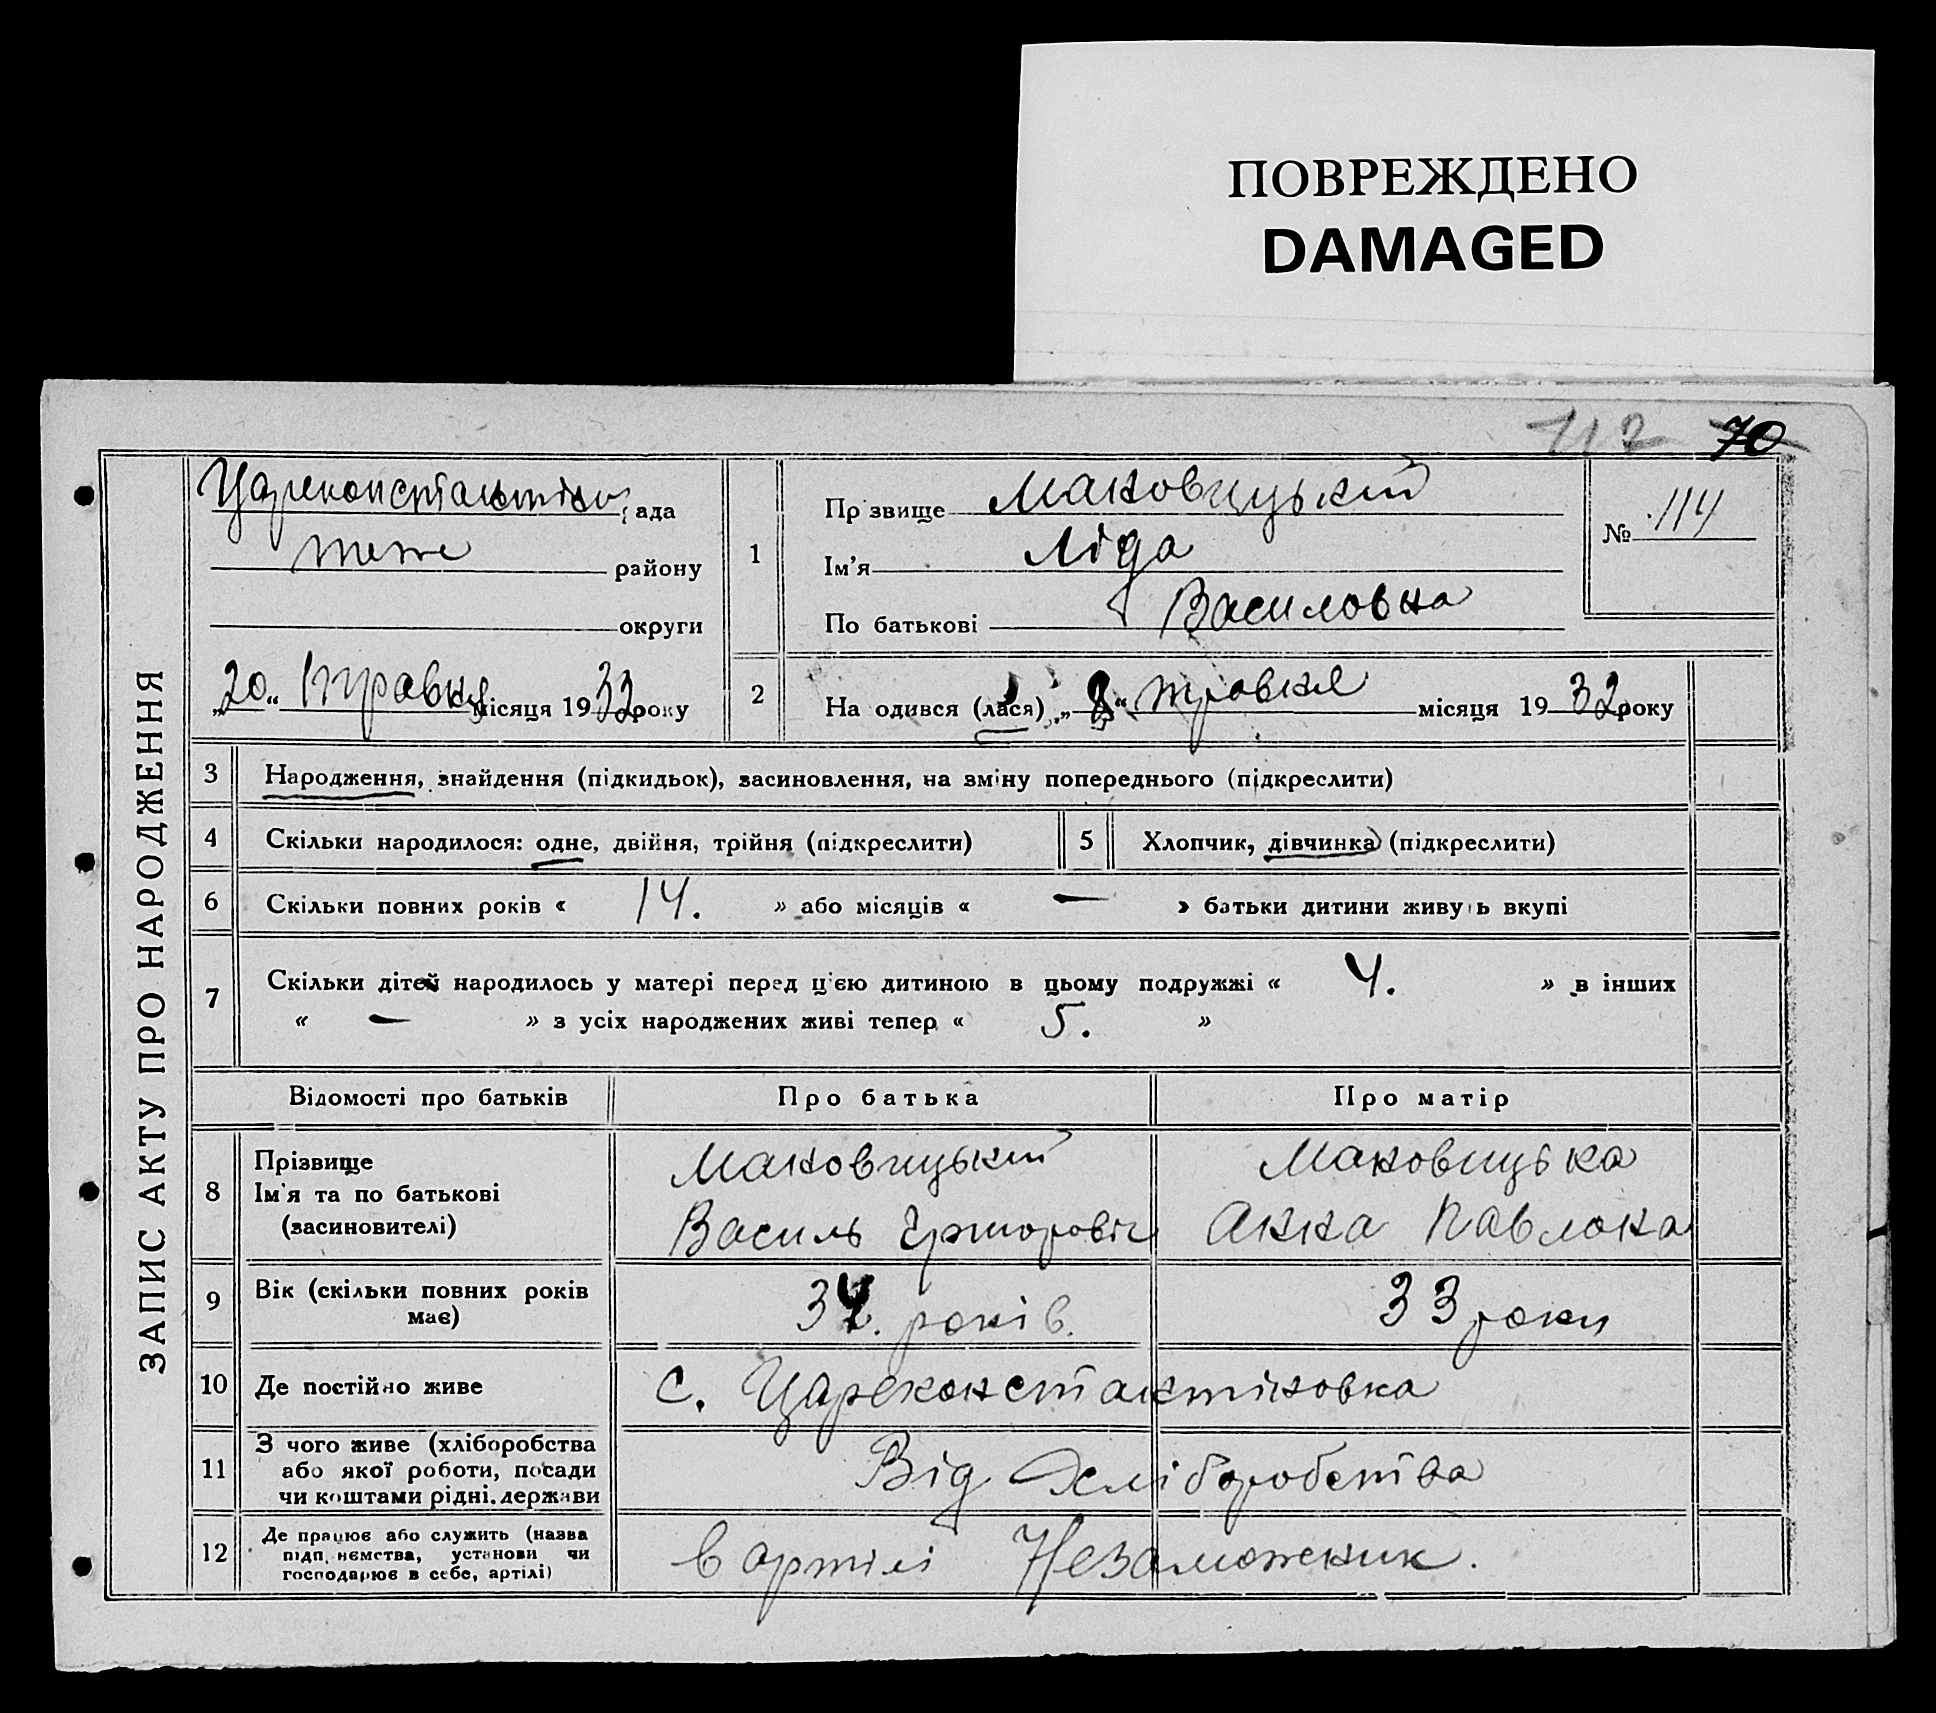 ПОВРЕЖДЕНО
DAMAGED
112 70
ЗАПИС АКТУ ПРО НАРОДЖЕННЯ
Цареконстантинов рада
теж району
округи
„20“ травня місяця 1932 року
1
Прізвище Маковицький
Ім’я Ліда
По батькові Василовна
№ 114
2
На одився (лася) „ “ травня місяця 1932 року
3 Народження, знайдення (підкидьок), засиновлення, на зміну попереднього (підкреслити)
4 Скільки народилося: одне, двійня, трійня (підкреслити) 5 Хлопчик, дівчинка (підкреслити)
6 Скільки повних років « 14. » або місяців « — » батьки дитини живуть вкупі
7 Скільки дітей народилось у матері перед цією дитиною в цьому подружжі « 4. » в інших
« — » з усіх народжених живі тепер « 5. »
Відомості про батьків Про батька Про матір
8 Прізвище
Ім’я та по батькові
(засиновителі)
Маковицький
Василь
Маковицька
Анна Павловна
9 Вік (скільки повних років
має)
34. років.
33 роки
10 Де постійно живе с. Цареконстантіновка
11 З чого живе (хліборобства
або якої роботи, посади
чи коштами рідні. держави
Від Хліборобства
12 Де працює або служить (назва
підп.иємства, установи чи
господарює в себе, артілі)
в артілі Незаможник.